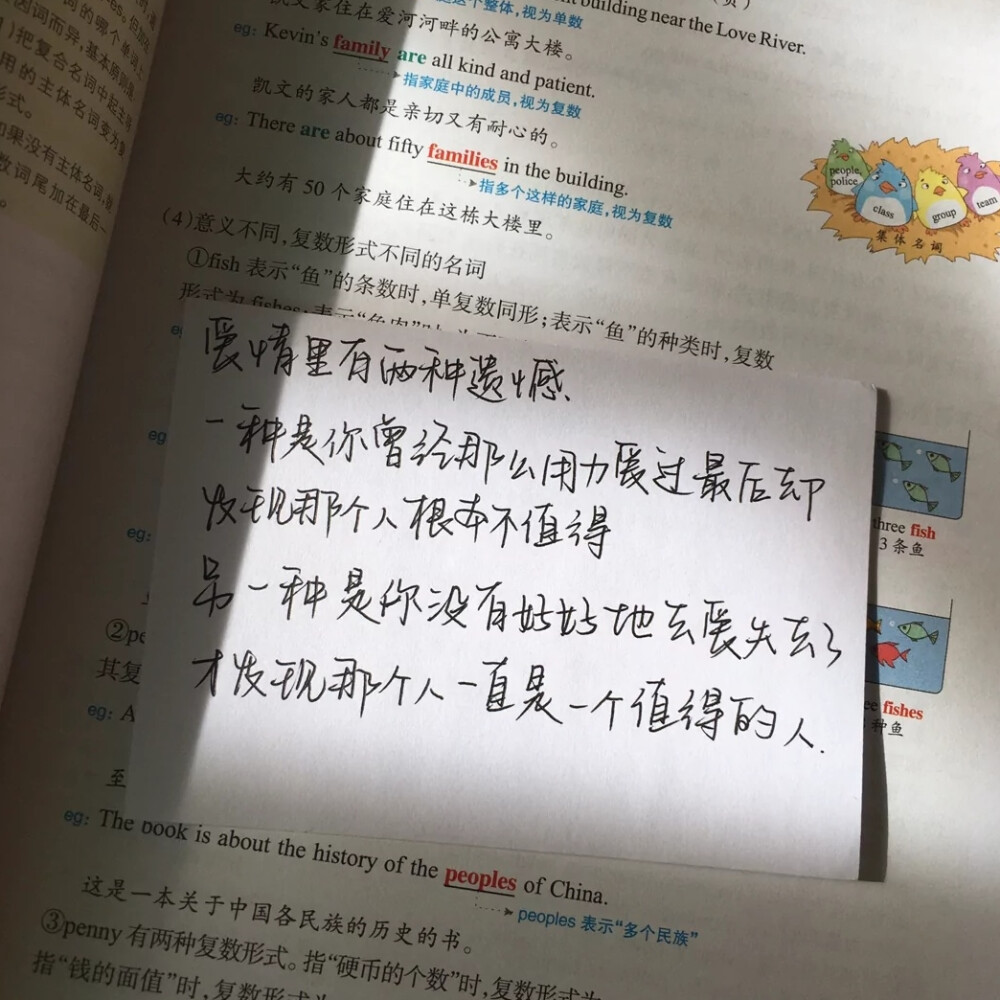 词的哪个单词上
因词而异,基本原则是
)把复合名词中起主
用的主体名词变为复
形式。
如果没有主体名词,
数词尾加在最后一
。
这个整体,视为单数
building near the Love River.
凯文家住在爱河河畔的公寓大楼。
eg: Kevin's family are all kind and patient.
指家庭中的成员,视为复数
凯文的家人都是亲切又有耐心的。
eg: There are about fifty families in the building.
指多个这样的家庭,视为复数
大约有 50 个家庭住在这栋大楼里。
people,
police
class
group
team
集体名词
(4)意义不同,复数形式不同的名词
①fish 表示“鱼”的条数时,单复数同形;表示“鱼”的种类时,复数
形式为 fishes;表示“鱼肉”时
爱情里有两种遗憾、
一种是你曾经那么用力爱过最后却
发现那个人根本不值得
另一种是你没有好好地去爱失去了
才发现那个人一直是一个值得的人.
eg:
eg:
three fish
3 条鱼
②pe
其复
fishes
种鱼
eg: A
至
eg: The book is about the history of the peoples of China.
peoples 表示“多个民族”
这是一本关于中国各民族的历史的书。
③penny 有两种复数形式。指“硬币的个数”时,复数形式为
指“钱的面值”时,复数形式为